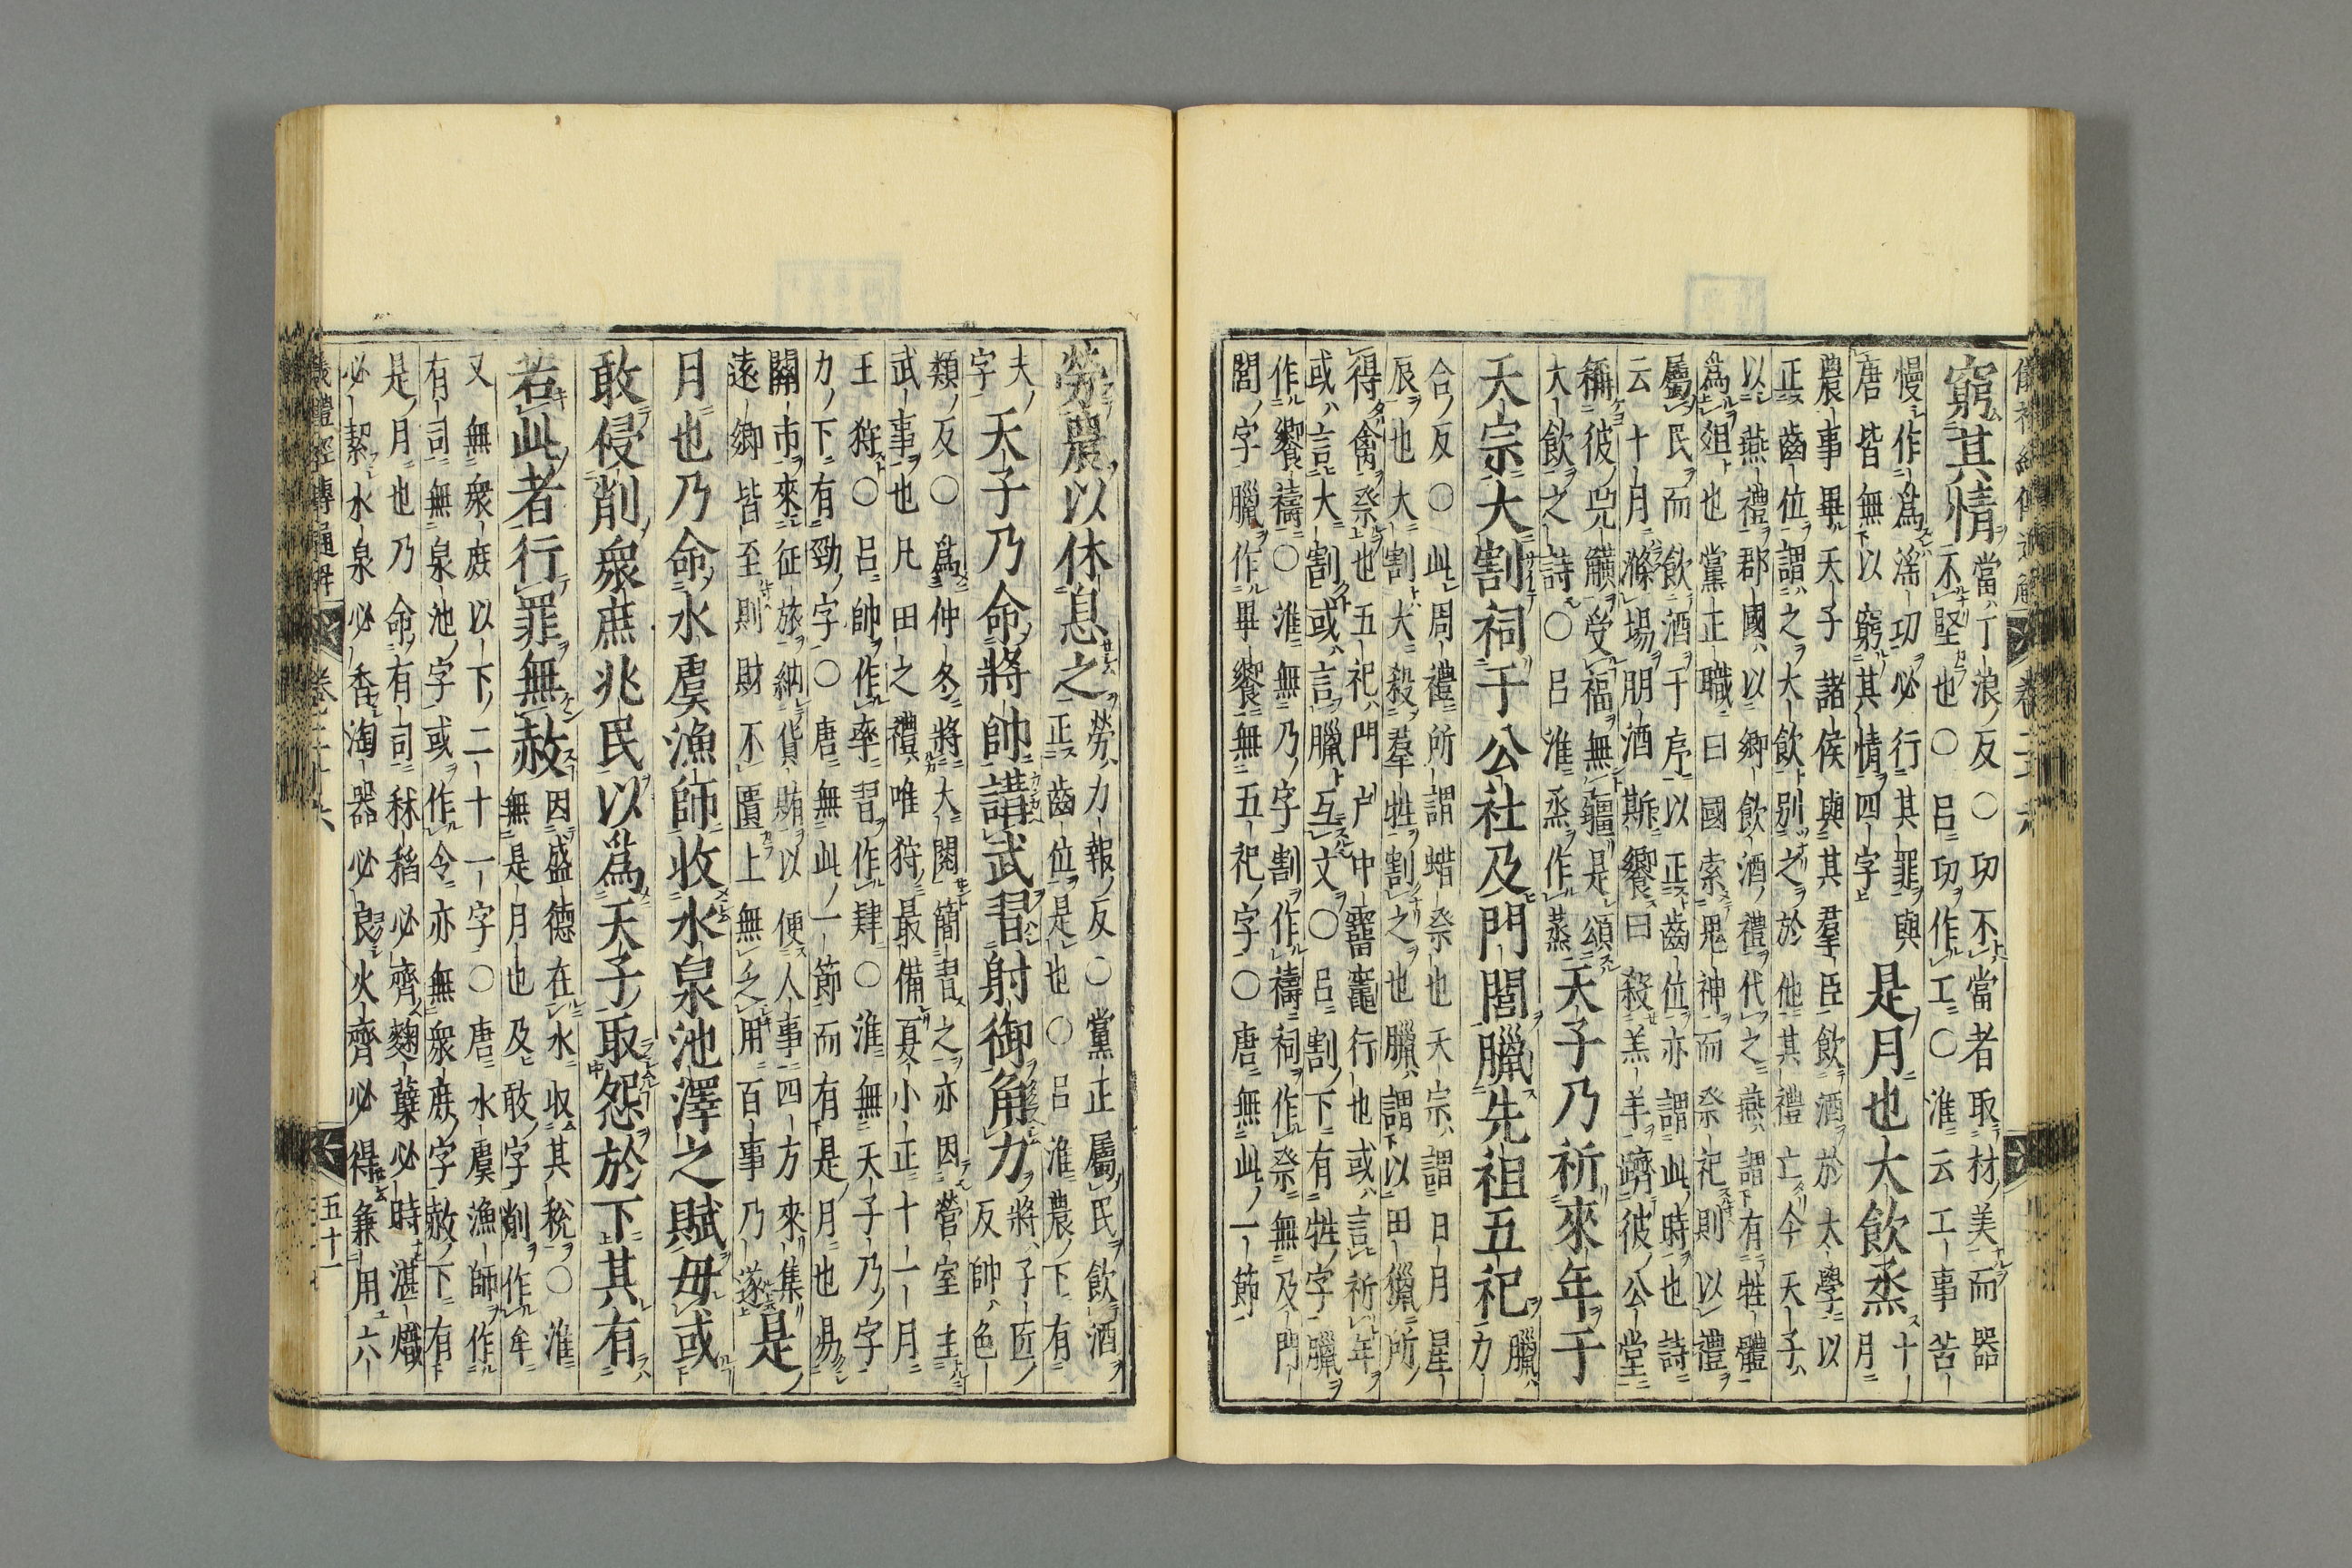 儀禮經傳通解
卷二十六
窮其情當丁浪反○功不當者取材美而器
不堅也○呂功作工○淮云工事苦
慢作爲淫功必行其罪與
唐皆無以窮其情四字
是月也大飲烝十月
農事畢天子諸侯與其羣臣飲酒於太學以
正齒位謂之大飲別之於他其禮亡今天子
以燕禮郡國以鄉飲酒禮代之燕謂有牲體
爲俎也黨正職曰國索鬼神而祭祀則以禮
屬民而飲酒于序以正齒位亦謂此時也詩
云十月滌場朋酒斯饗曰殺羔羊躋彼公堂
稱彼兕觥受福無疆是頌
大飲之詩○呂淮烝作蒸
天子乃祈來年于
天宗大割祠于公社及門閭臘先祖五祀臘力
合反○此周禮所謂蜡祭也天宗謂日月星
辰也大割大殺羣牲割之也臘謂以田獵所
得禽祭也五祀門戶中霤竈行也或言祈年
或言大割或言臘互文○呂割下有牲字臘
作饗禱○淮無乃字割作禱祠作祭無及門
閭字臘作畢饗無五祀字○唐無此一節
勞農以休息之勞力報反○黨正屬民飲酒
正齒位是也○呂淮農下有
夫字
天子乃命將帥講武習射御角力將子匠
反帥色
類反○爲仲冬將大閱簡習之亦因營室主
武事也凡田之禮唯狩最備夏小正十一月
王狩○呂帥作率習作肄○淮無天子乃字
力下有勁字○唐無此一節而有是月也易
關市來征旅納貨賄以便人事四方來集
遠鄉皆至則財不匱上無乏用百事乃遂
是
月也乃命水虞漁師收水泉池澤之賦毋或
敢侵削衆庶兆民以爲天子取怨於下其有
若此者行罪無赦因盛德在水收其稅○淮
無是月也及敢字削作牟
又無衆庶以下二十一字○唐水虞漁師作
有司無泉池字或作令亦無衆庶字赦下有
是月也乃命有司秫稻必齊麴蘖必時湛熾
必絜水泉必香淘器必良火齊必得兼用六
儀禮經傳通解
卷二十六
五十一